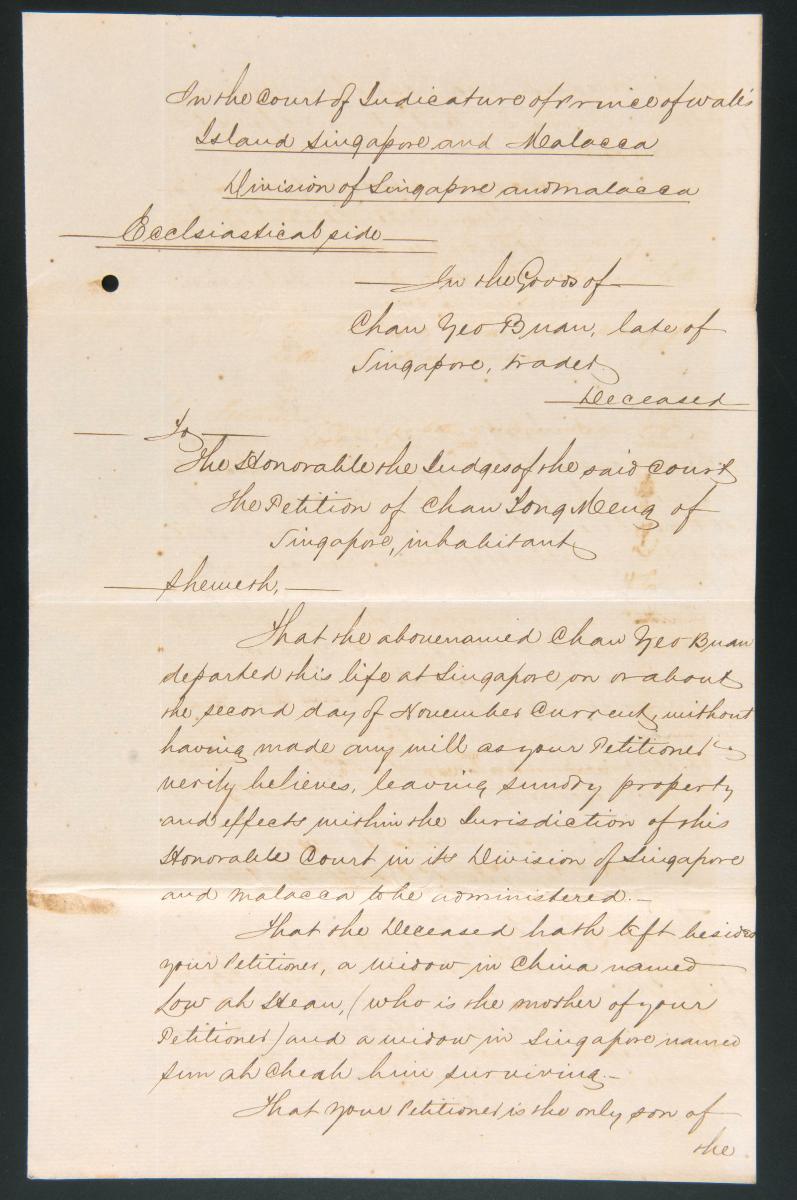 In the Court of Judicature of Prince of Wale's
Island Singapore and Malacca
Division of Singapore and Malacca
Ecclsiastical side
In the Goods of
Chan Yeo Buan, late of
Singapore, trader
Deceased
To
The Honorable the Judges of the said Court
The Petition of Chan Tong Meng of
Singapore, inhabitant
Sheweth,
That the abovenamed Chan Yeo Buan
departed this life at Singapore on or about
the second day of November Current, without
having made any will as your Petitioner
verily believes, leaving sundry property
and effects within the Jurisdiction of this
Honorable Court in its Division of Singapore
and Malacca to be administered.—
That the Deceased hath left besides
your Petitioner, a widow in China named
Low ah Hean, (who is the mother of your
Petitioner) and a widow in Singapore named
Sun ah Cheah him surviving.—
That your Petitioner is the only son of
the